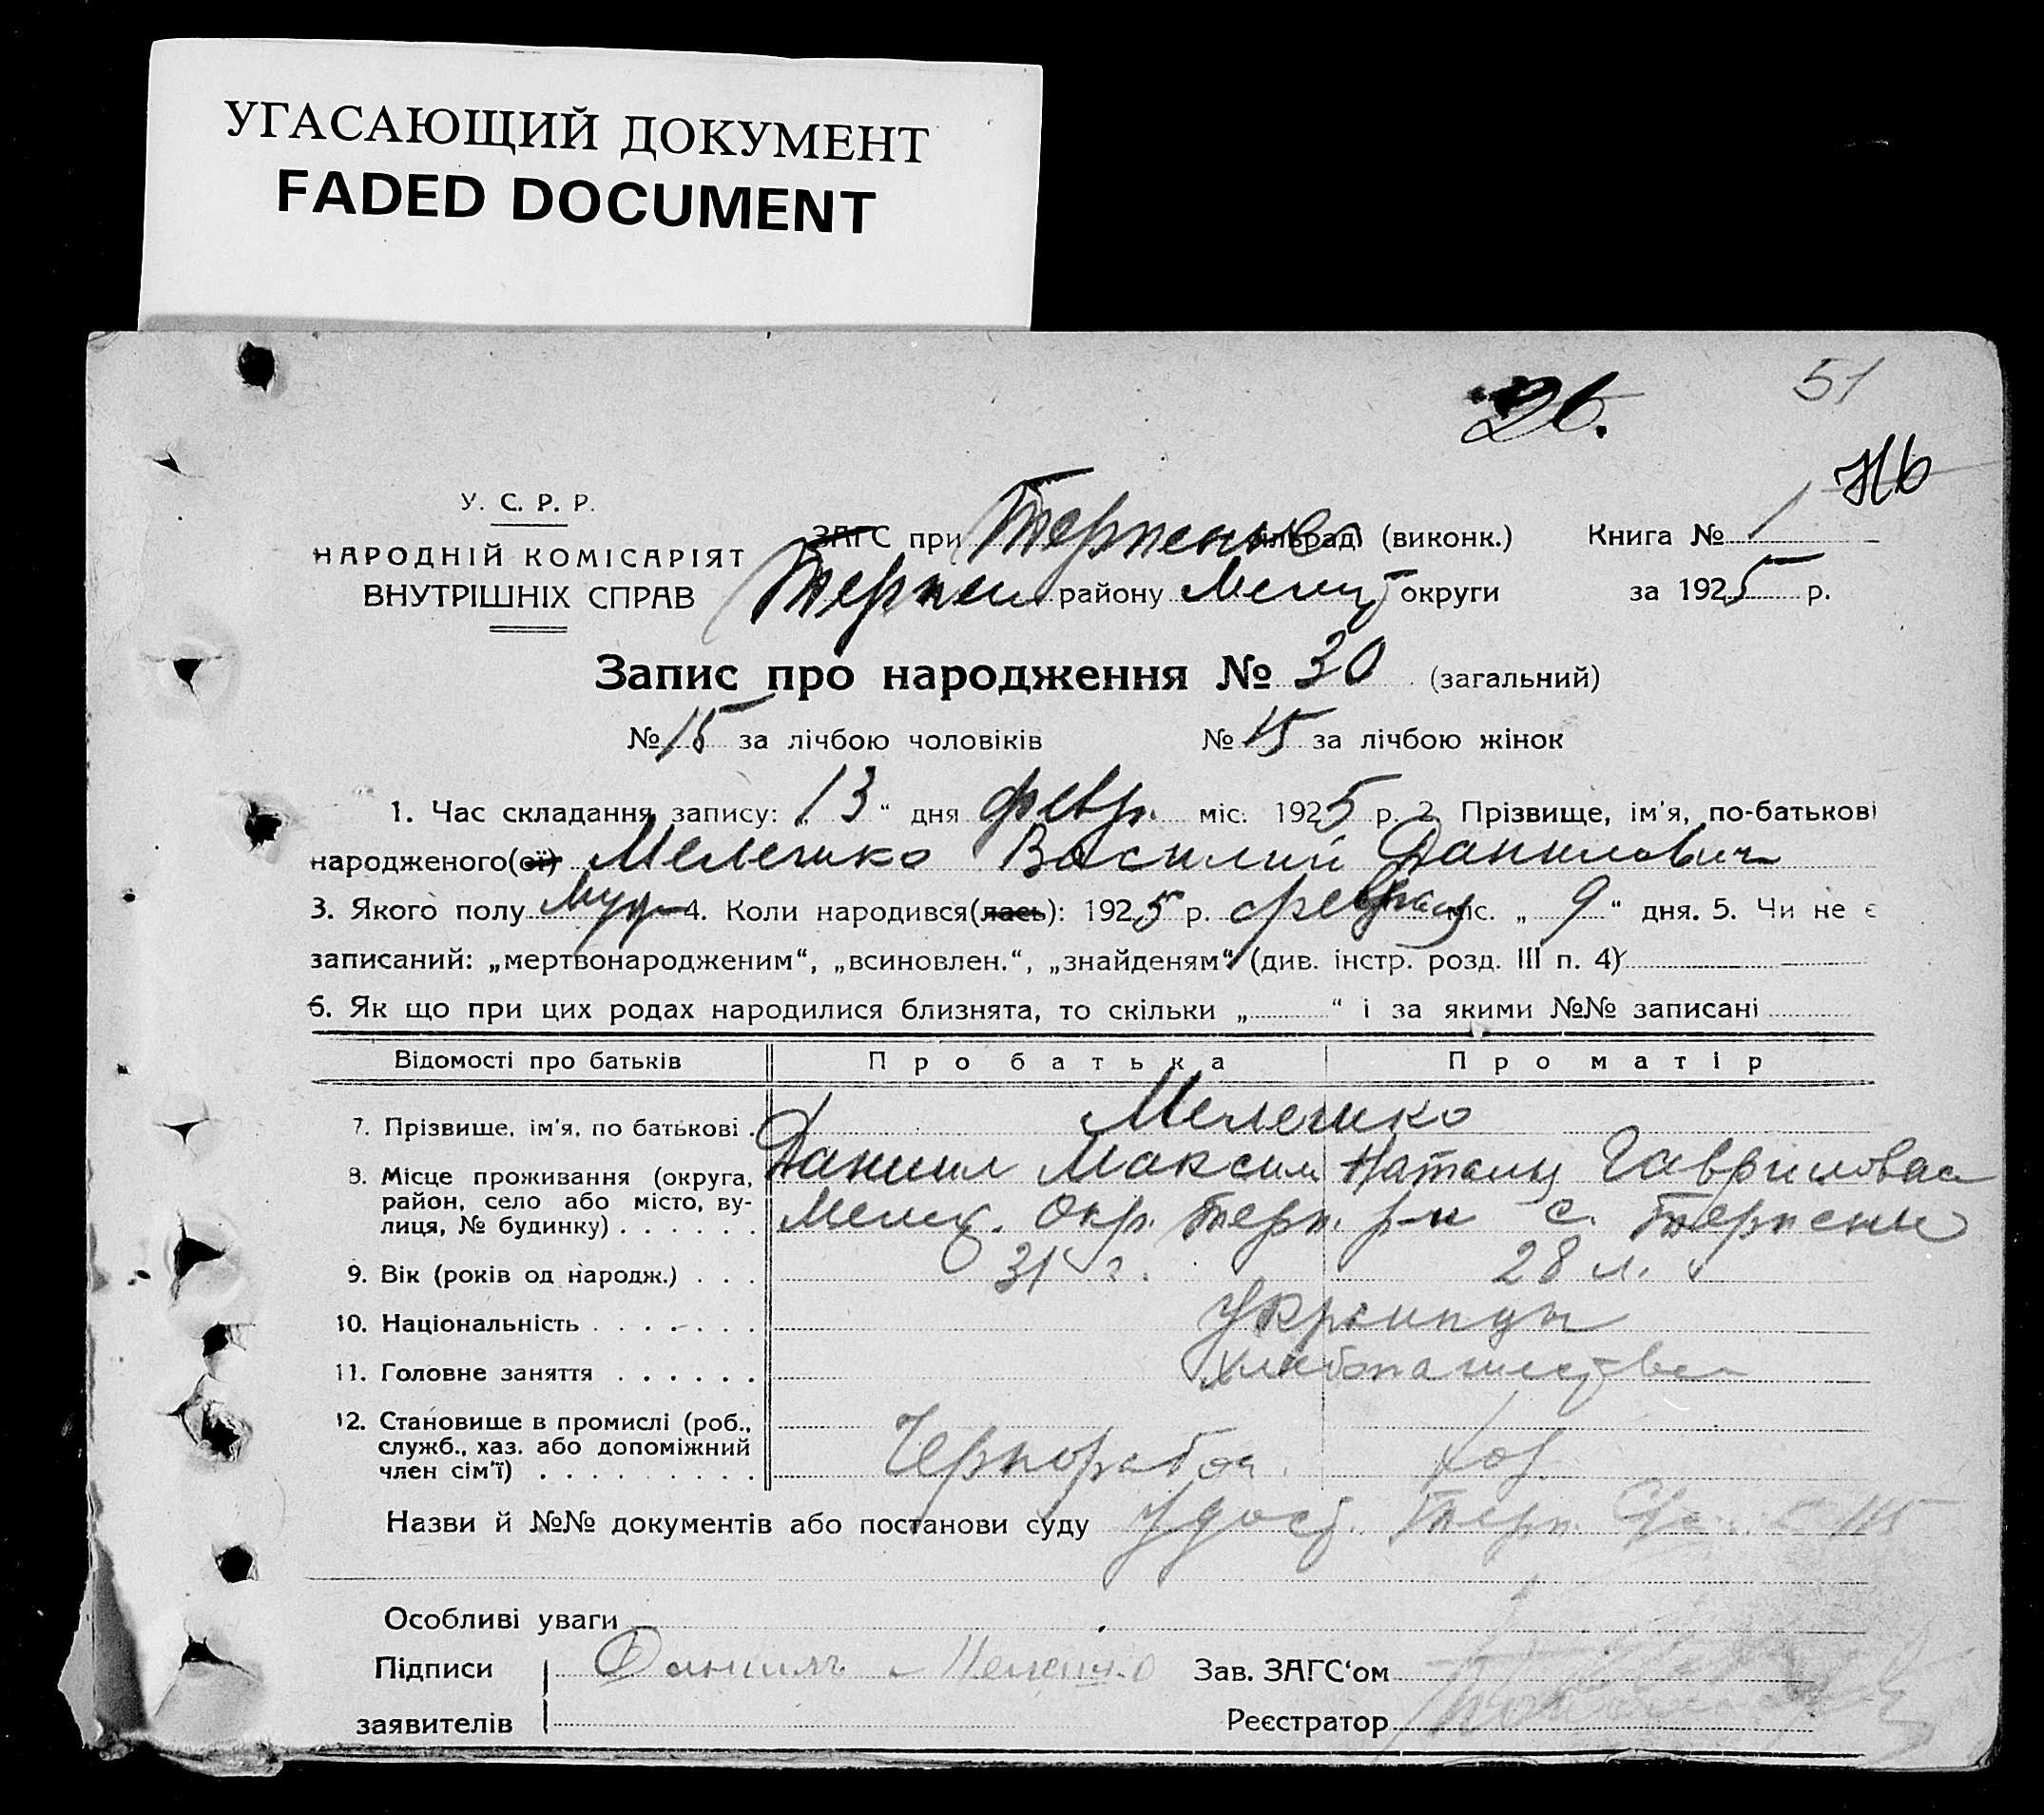 УГАСАЮЩИЙ ДОКУМЕНТ
FADED DOCUMENT
51
26.
У. С. Р. Р.
НАРОДНІЙ КОМІСАРІЯТ
ВНУТРІШНІХ СПРАВ
ЗАГС при Терпение сільрад. (виконк.) Книга № 1
Терпен району Мелит округи за 1925 р.
Запис про народження № 30 (загальний)
№ 15 за лічбою чоловіків № 15 за лічбою жінок
1. Час складання запису: „13“ дня февр. міс. 1925 р. 2. Прізвище, ім'я, по-батькові
народженого(ої) Мелешко Василий Данилович
3. Якого полу муж 4. Коли народився(лась): 1925 р. февраля міс. „9“ дня. 5. Чи не є
записаний: „мертвонародженим“, „всиновлен.“, „знайденям“ (див. інстр. розд. III п. 4)
6. Як що при цих родах народилися близнята, то скільки „ “ і за якими №№ записані
Відомості про батьків Про батька Про матір
7. Прізвище, ім'я, по батькові . Мелешко
Даниил Максим Наталия Гавриловна
8. Місце проживання (округа, район, село або місто, ву-
лиця, № будинку) . . . . . . Мелит. Окр. Терп. р-н с. Терпение
9. Вік (років од народж.) . . . 31 г. 28 л.
10. Національність . . . . . . . Украинцы
11. Головне заняття . . . . . . Хлебопашество
12. Становище в промислі (роб.,
служб., хаз. або допоміжний
член сім'ї) . . . . . . . . . Чернорабоч. хоз.
Назви й №№ документів або постанови суду Удост. Терп.
Особливі уваги
Підписи Даниил Мелешко Зав. ЗАГС'ом
заявителів Реєстратор